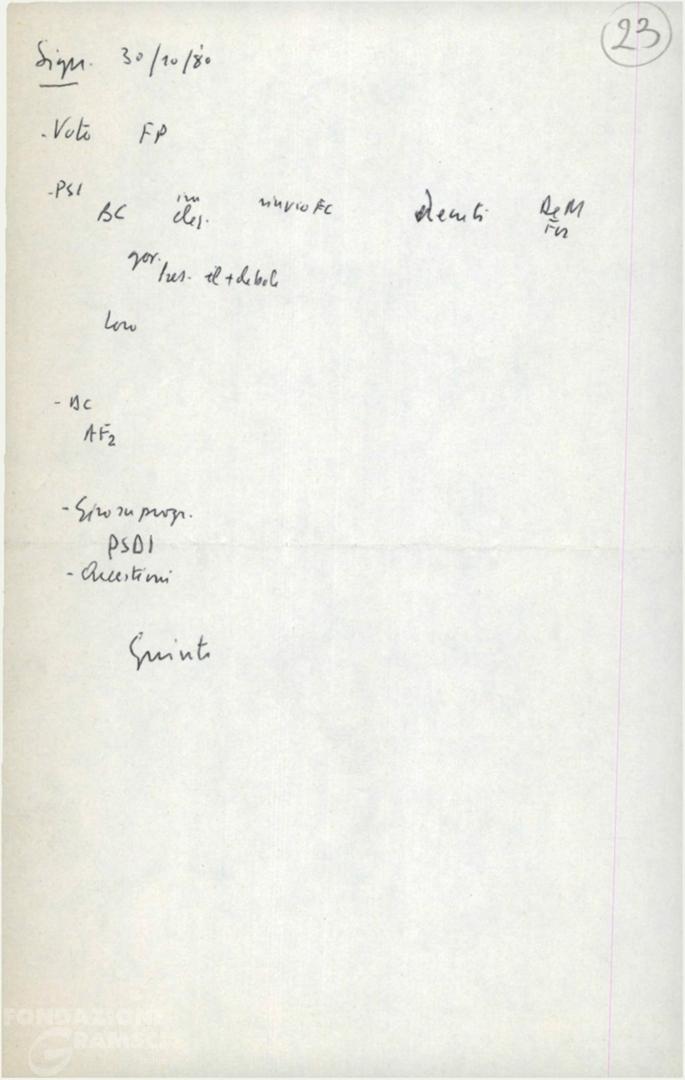 23
Sign. 30/10/80
- Voto FP
- PSI
BC im rinvio FC decreti DeM
deg. Fo2
gov.
pres. il + debole
Loro
- BC
AF2
- Giro su progr.
PSDI
- Questioni
Quinti
FONDAZIONE
GRAMSCI